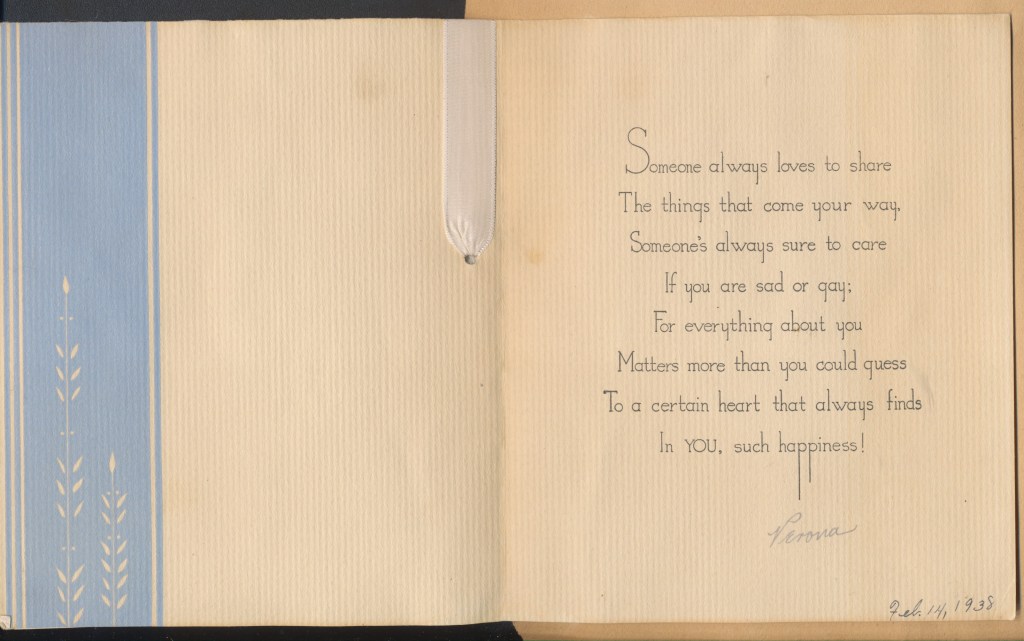 Someone always loves to share
The things that come your way,
Someone's always sure to care
If you are sad or gay;
For everything about you
Matters more than you could guess
To a certain heart that always finds
In YOU, such happiness!
Verona
Feb. 14, 1938